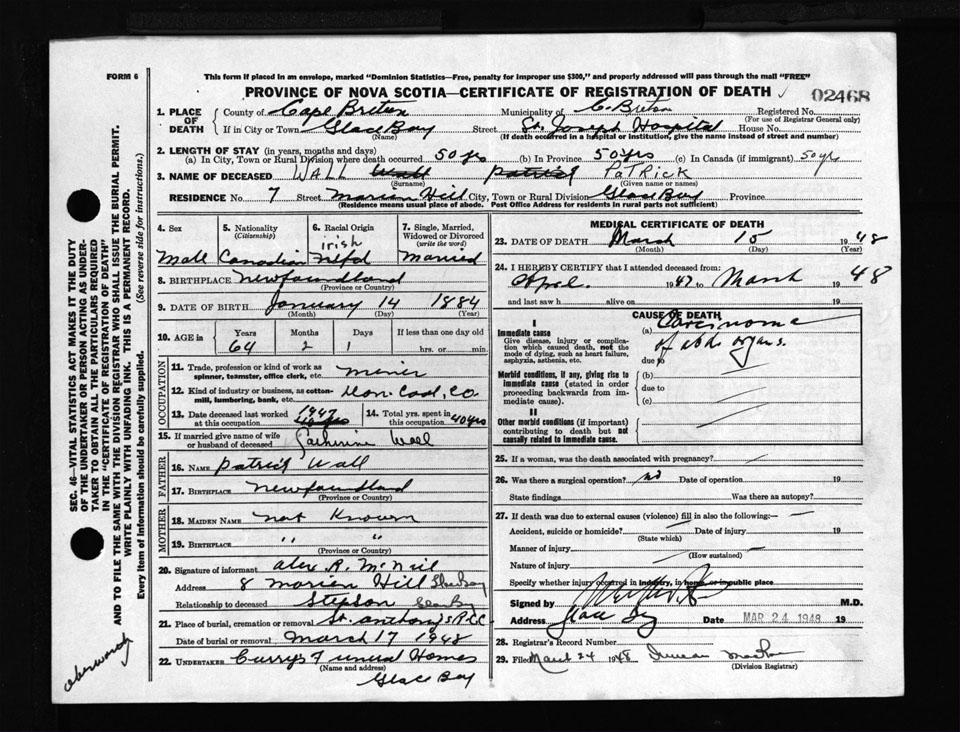 FORM 6
This form if placed in an envelope, marked "Dominion Statistics—Free, penalty for improper use $300," and properly addressed will pass through the mail "FREE"
PROVINCE OF NOVA SCOTIA—CERTIFICATE OF REGISTRATION OF DEATH
02468
1. PLACE OF DEATH
County of Cape Breton Municipality of C. Breton Registered No.
(For use of Registrar General only)
If in City or Town Glace Bay Street St. Joseph Hospital House No.
(Name) (If death occurred in a hospital or institution, give the name instead of street and number)
2. LENGTH OF STAY (in years, months and days)
(a) In City, Town or Rural Division where death occurred 50 yrs (b) In Province 50 yrs (c) In Canada (if immigrant) 50 yr
3. NAME OF DECEASED WALL Wall Patrick PATRICK
(Surname) (Given name or names)
RESIDENCE No. 7 Street Marion Hill City, Town or Rural Division Glace Bay Province
(Residence means usual place of abode. Post Office Address for residents in rural parts not sufficient)
4. Sex
5. Nationality
(Citizenship)
6. Racial Origin
7. Single, Married, Widowed or Divorced
(write the word)
Irish
Male Canadian Nfld Married
8. BIRTHPLACE Newfoundland
(Province or Country)
9. DATE OF BIRTH January 14 1884
(Month) (Day) (Year)
10. AGE in
Years Months Days If less than one day old
64 2 1 hrs. or min.
OCCUPATION
11. Trade, profession or kind of work as spinner, teamster, office clerk, etc. Miner
12. Kind of industry or business, as cotton-mill, lumbering, bank, etc. Dom. Coal, Co
13. Date deceased last worked at this occupation 1947
14. Total yrs. spent in this occupation 40 yrs
15. If married give name of wife or husband of deceased Catherine Wall
FATHER
16. NAME Patrick Wall
17. BIRTHPLACE Newfoundland
(Province or Country)
MOTHER
18. MAIDEN NAME not Known
19. BIRTHPLACE " "
(Province or Country)
20. Signature of informant Alex. R. McNeil
Address 8 Marion Hill Glace Bay
Relationship to deceased Stepson Glace Bay
21. Place of burial, cremation or removal St. Anthony's
Date of burial or removal March 17 1948
22. UNDERTAKER Curry's Funeral Homes
(Name and address)
Glace Bay
MEDICAL CERTIFICATE OF DEATH
23. DATE OF DEATH March 15 1948
(Month) (Day) (Year)
24. I HEREBY CERTIFY that I attended deceased from:
April 1947 to March 1948
and last saw h alive on 19
CAUSE OF DEATH
I
Immediate cause
Give disease, injury or complication which caused death, not the mode of dying, such as heart failure, asphyxia, asthenia, etc.
(a) Carcinoma
of abd. organs.
due to
Morbid conditions, if any, giving rise to immediate cause (stated in order proceeding backwards from immediate cause).
(b)
due to
(c)
II
Other morbid conditions (if important) contributing to death but not causally related to immediate cause.
25. If a woman, was the death associated with pregnancy?
26. Was there a surgical operation? no Date of operation 19
State findings Was there an autopsy?
27. If death was due to external causes (violence) fill in also the following:—
Accident, suicide or homicide? Date of injury 19
(State which)
Manner of injury
(How sustained)
Nature of injury
Specify whether injury occurred in industry, in home or in public place
Signed by M.D.
Address Glace Bay Date MAR 24 1948 19
28. Registrar's Record Number
29. Filed March 24 1948 Duncan
(Division Registrar)
SEC. 46—VITAL STATISTICS ACT MAKES IT THE DUTY
OF THE UNDERTAKER OR PERSON ACTING AS UNDER-
TAKER TO OBTAIN ALL THE PARTICULARS REQUIRED
IN THE "CERTIFICATE OF REGISTRATION OF DEATH"
AND TO FILE THE SAME WITH THE DIVISION REGISTRAR WHO SHALL ISSUE THE BURIAL PERMIT.
WRITE PLAINLY WITH UNFADING INK. THIS IS A PERMANENT RECORD.
Every item of information should be carefully supplied. (See reverse side for instructions.)